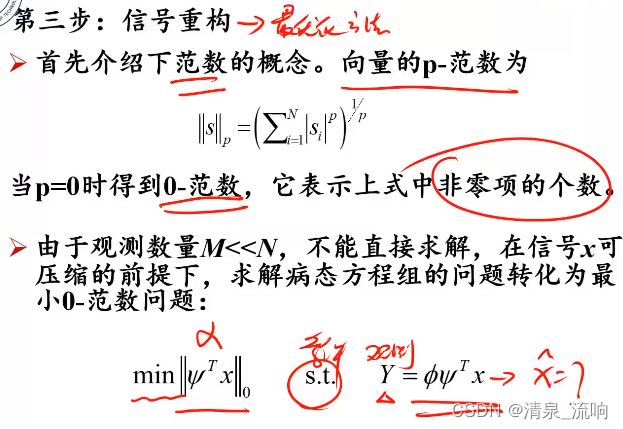 第三步：信号重构 → 最优化方法
➤ 首先介绍下范数的概念。向量的p-范数为
‖s‖_p = (∑_{i=1}^{N} |s_i|^p)^{1/p}
当p=0时得到0-范数，它表示上式中非零项的个数。
➤ 由于观测数量M<<N，不能直接求解，在信号x可
压缩的前提下，求解病态方程组的问题转化为最
小0-范数问题：
α 观测
min‖ψ^T x‖_0 s.t. Y = ϕψ^T x → x̂=?
CSDN @清泉_流响